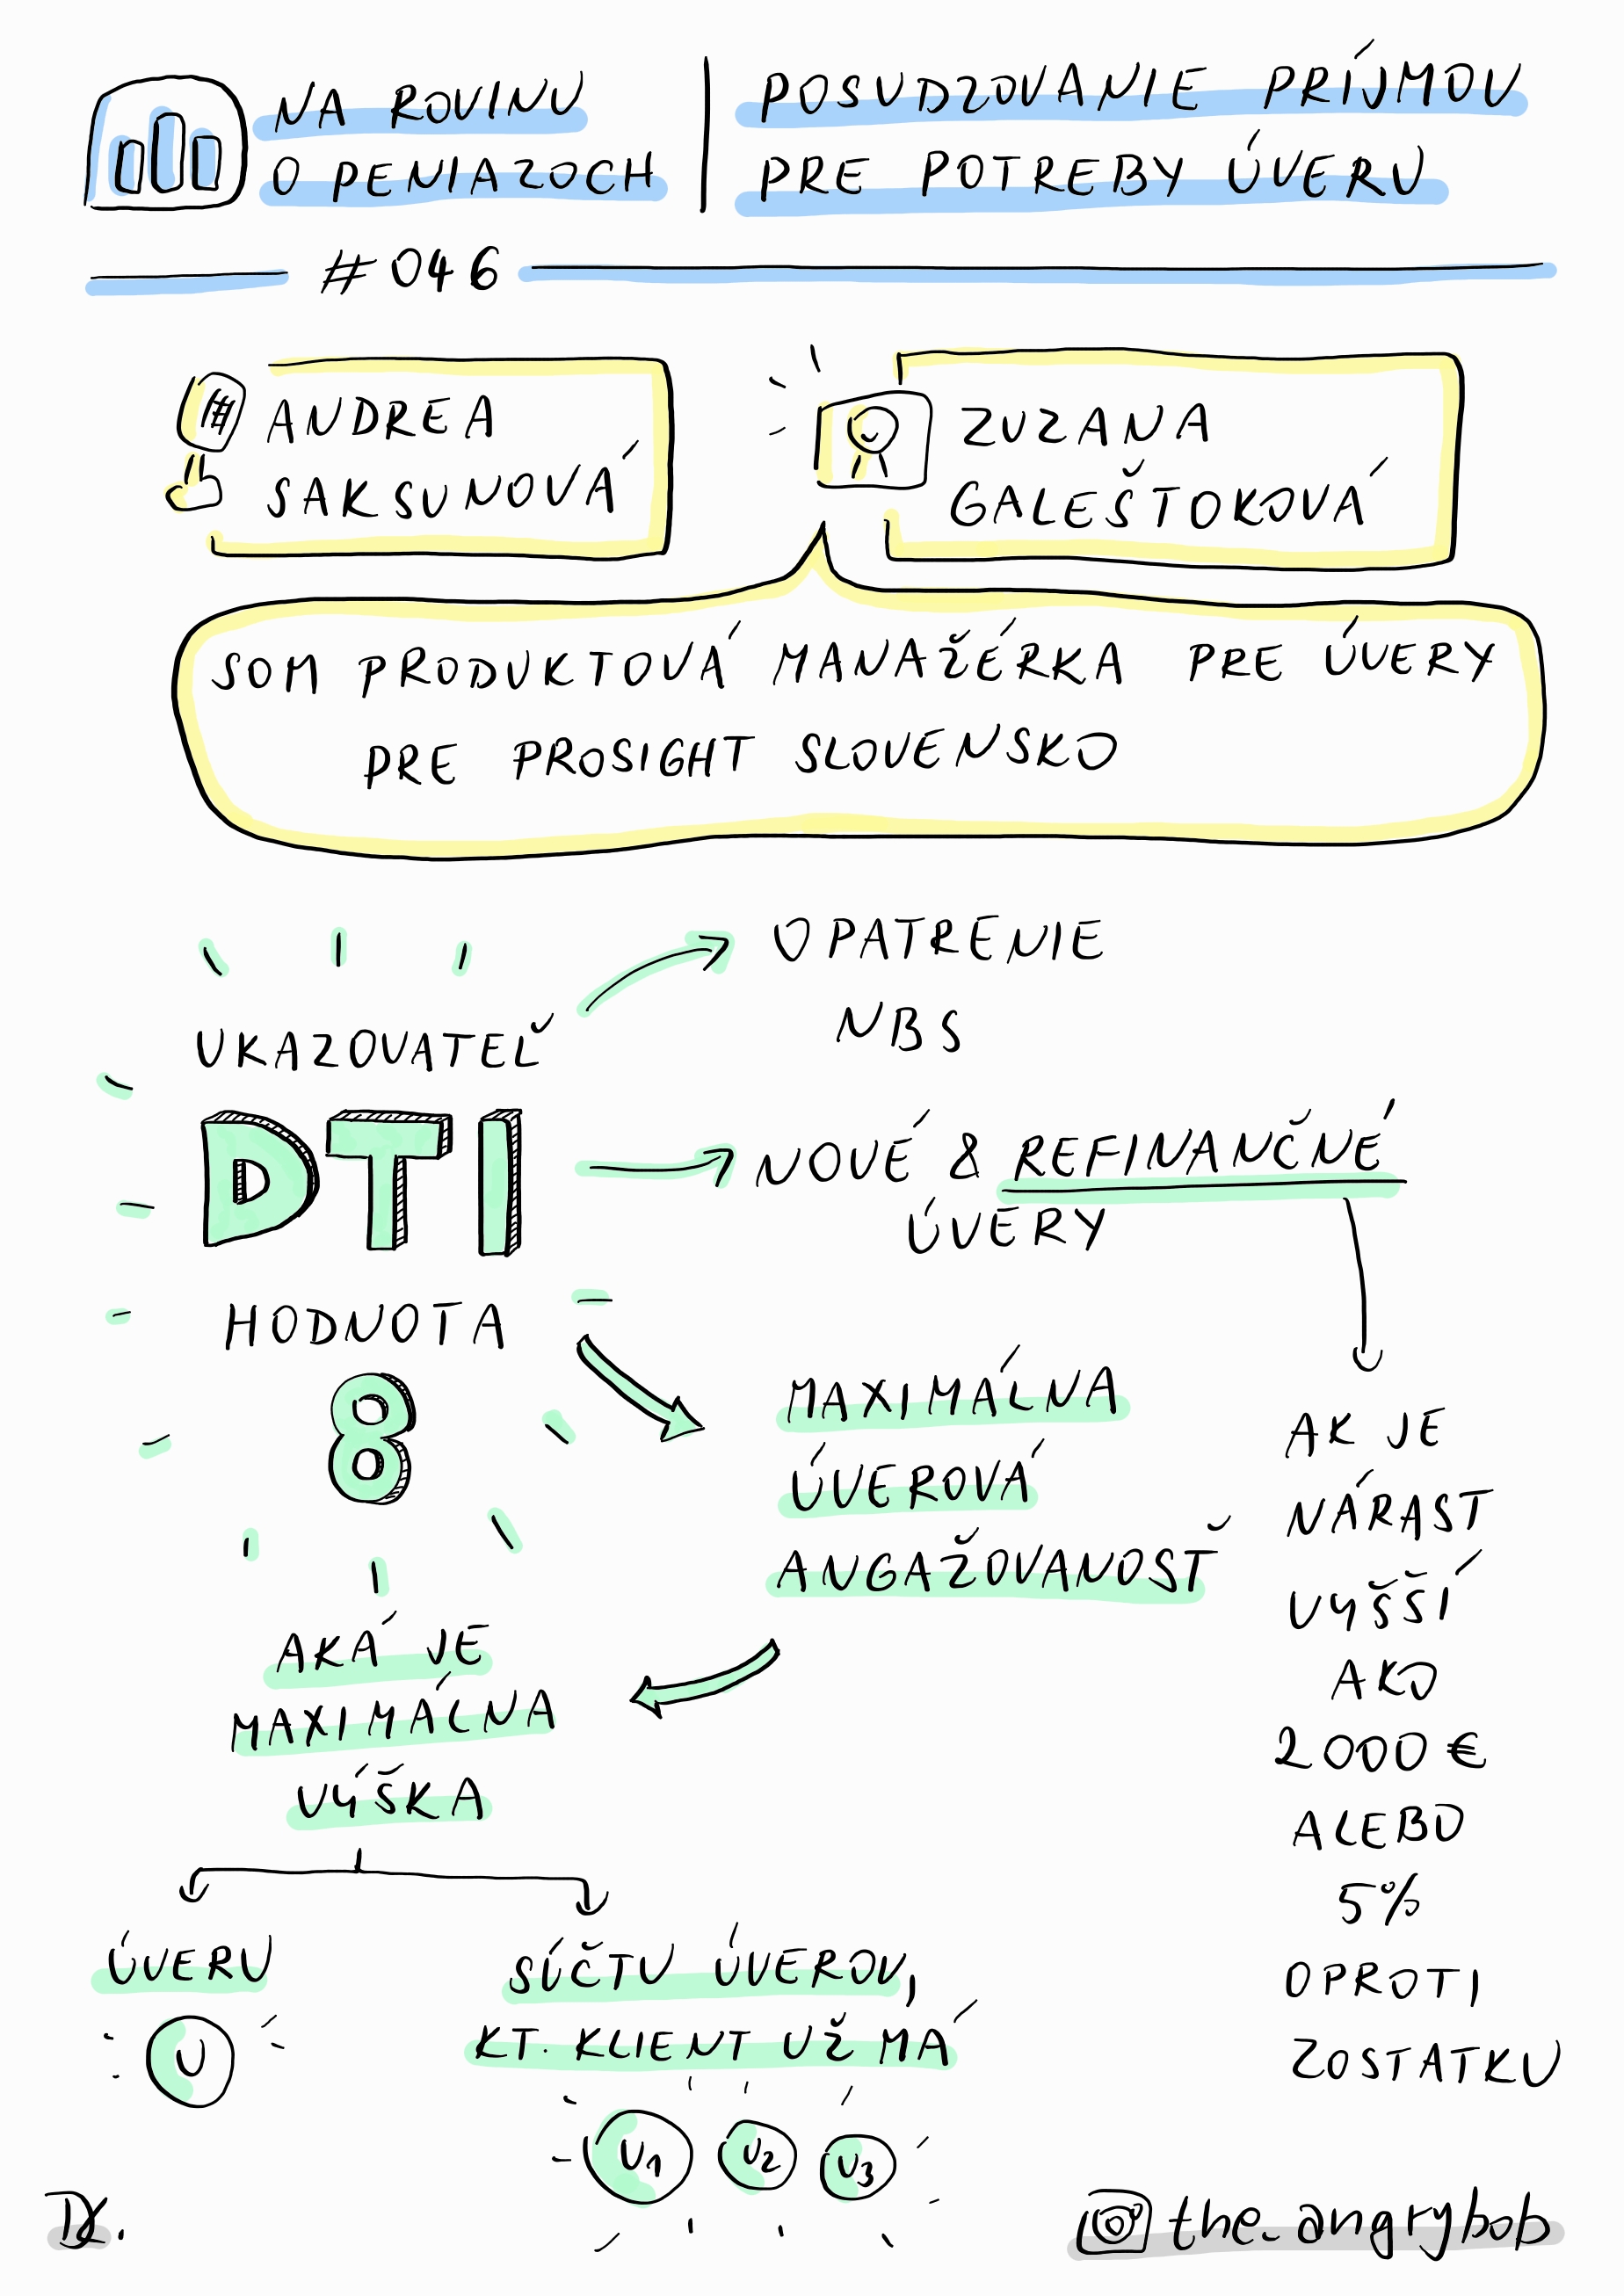 NA ROVINU
O PENIAZOCH
POSUDZOVANIE PRÍJMOV
PRE POTREBY ÚVERU
#046
ANDREA
SAKSUNOVÁ
ZUZANA
GALEŠTOKOVÁ
SOM PRODUKTOVÁ MANAŽÉRKA PRE ÚVERY
PRE PROSIGHT SLOVENSKO
UKAZOVATEĽ
DTI
HODNOTA
8
OPATRENIE
NBS
NOVÉ & REFINANČNÉ
ÚVERY
MAXIMÁLNA
ÚVEROVÁ
ANGAŽOVANOSŤ
AK JE
NÁRAST
VYŠŠÍ
AKO
2000 €
ALEBO
5%
OPROTI
ZOSTATKU
AKÁ JE
MAXIMÁLNA
VÝŠKA
ÚVERU
U
SÚČTU ÚVEROV,
KT. KLIENT UŽ MÁ
U1 U2 U3
the.angrybob